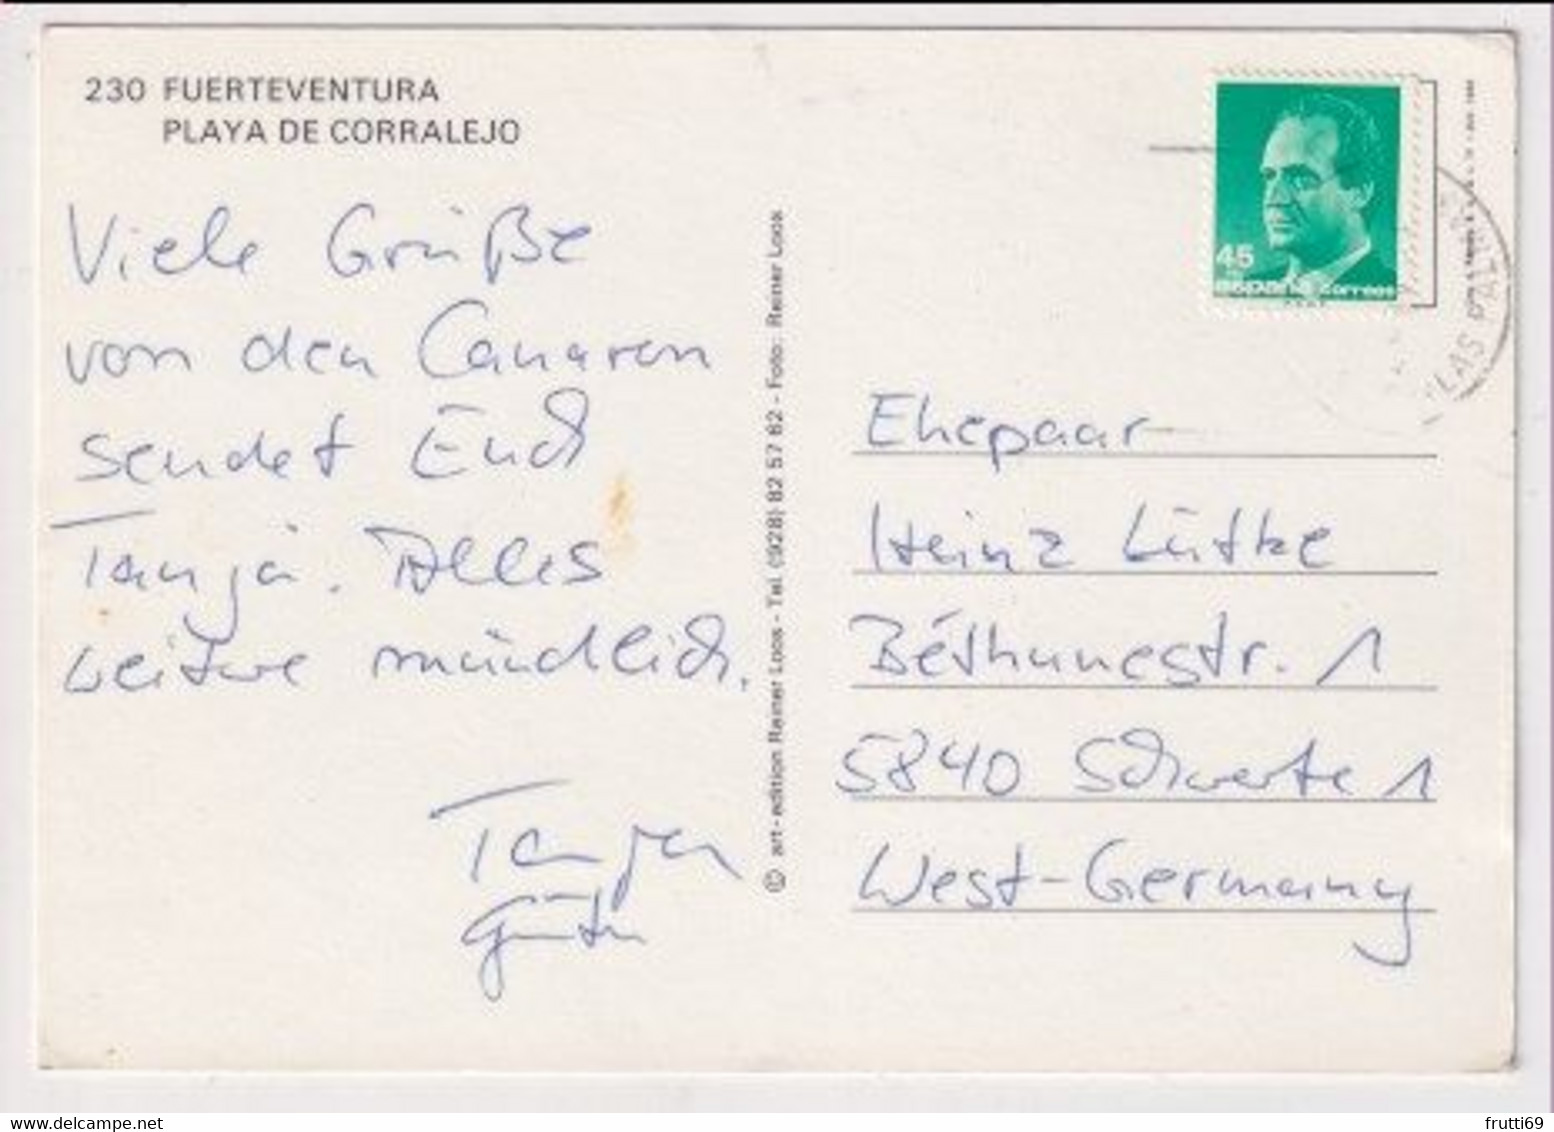 230 FUERTEVENTURA
PLAYA DE CORRALEJO
Viele Grüße
von den Canaren
sendet Euch
Tanja. Alles
weitere mündlich.
Tanja
© art-edition Rainer Loos - Tel. (928) 82 57 62 - Foto: Rainer Loos
45
españa correos
LAS PALMAS
Ehepaar
Heinz Lütke
Béthunestr. 1
5840 Schwerte 1
West-Germany
frutti69